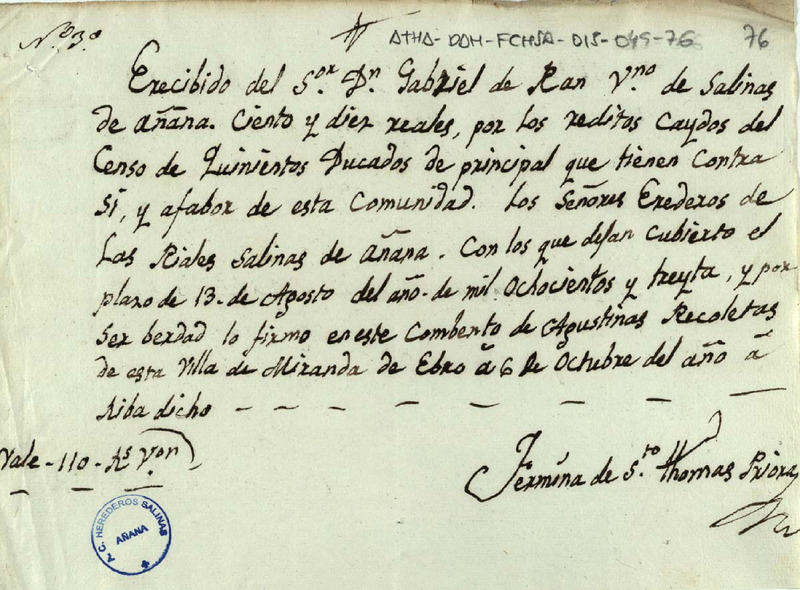 N.º 3.º
ATHA-DAH-FCHSA-015-045-76
76
Erecibido del S.or D.n Gabriel de Ran V.no de Salinas
de Añana. Ciento y diez reales, por los reditos Caydos del
Censo de Quinientos Ducados de principal que tienen contra
Si, y afabor de esta Comunidad. Los Señores Erederos de
Las Riales Salinas de Añana. Con los que dejan Cubierto el
plazo de 13. de Agosto del año. de mil Ochocientos y treyta, y por
Ser berdad lo firmo en este Combento de Agustinas Recoletas
de esta Villa de Miranda de Ebro â 6 de Octubre del año â
Riba dicho — — — — — — — —
Vale - 110 - Rs Von
Fermina de S.to Thomas Priora
A.C. HEREDEROS SALINAS
AÑANA